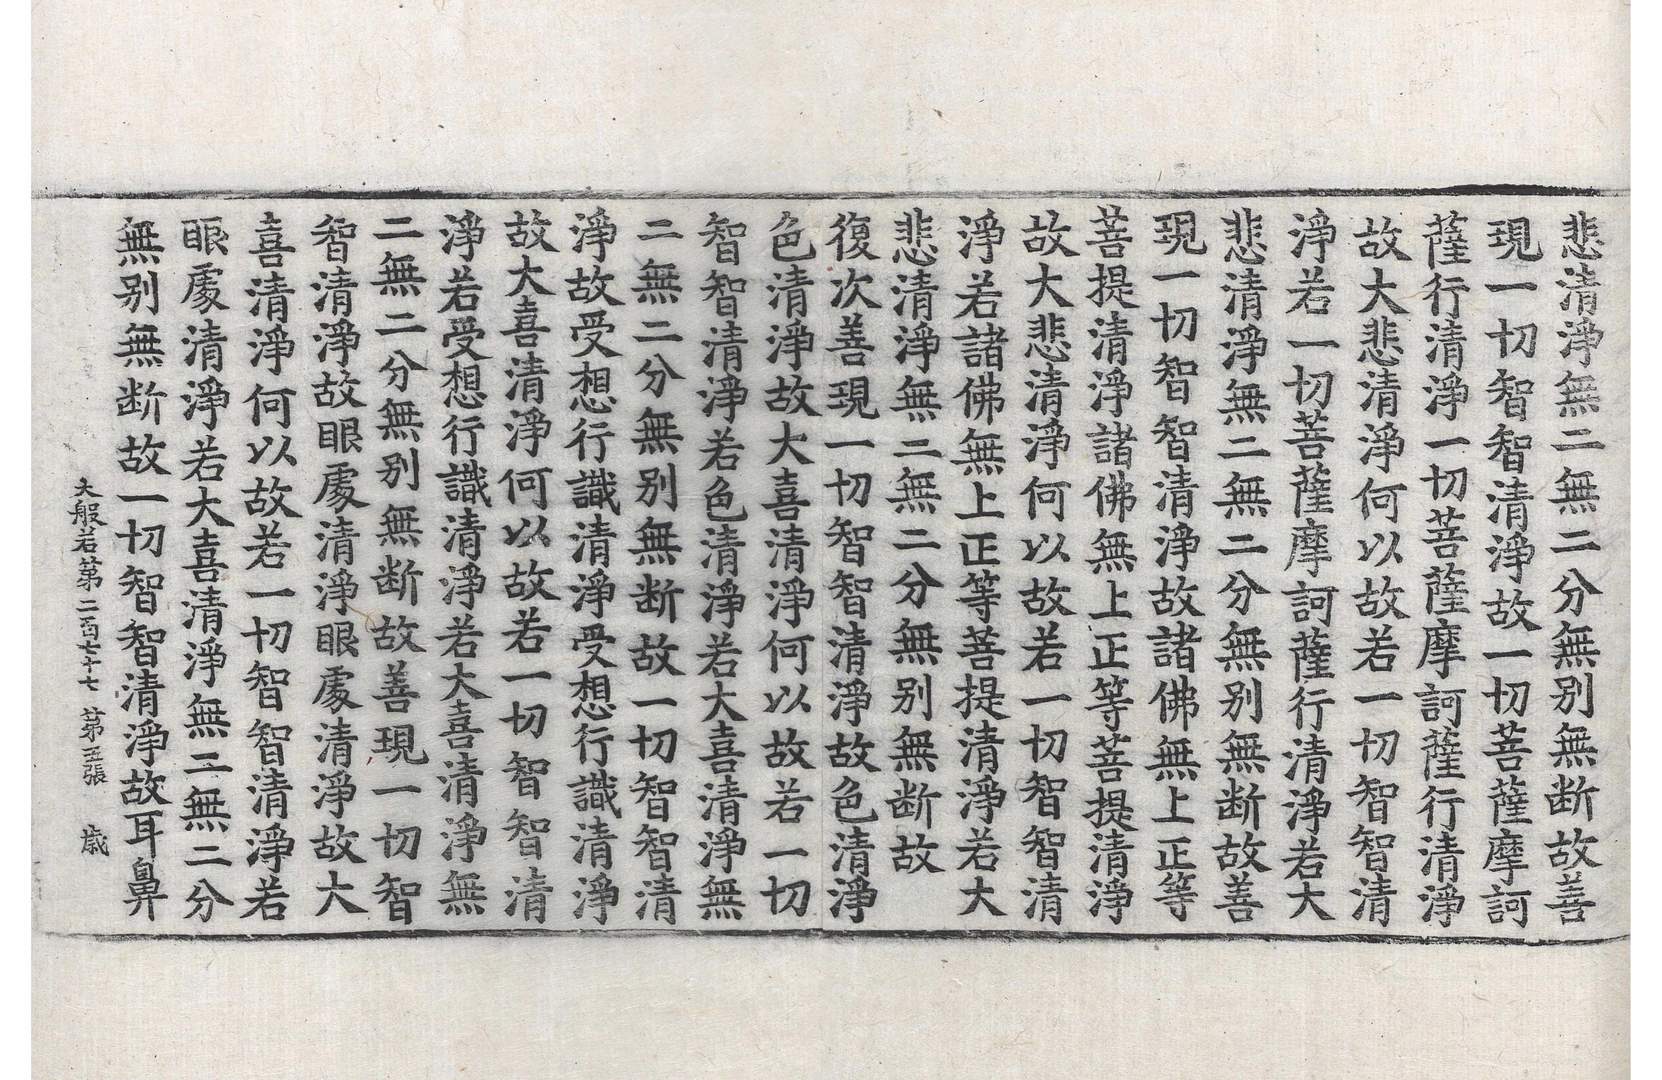 悲清淨無二無二分無別無断故善
現一切智智清淨故一切菩薩摩訶
薩行清淨一切菩薩摩訶薩行清淨
故大悲清淨何以故若一切智智清
淨若一切菩薩摩訶薩行清淨若大
悲清淨無二無二分無別無断故善
現一切智智清淨故諸佛無上正等
菩提清淨諸佛無上正等菩提清淨
故大悲清淨何以故若一切智智清
淨若諸佛無上正等菩提清淨若大
悲清淨無二無二分無別無断故
復次善現一切智智清淨故色清淨
色清淨故大喜清淨何以故若一切
智智清淨若色清淨若大喜清淨無
二無二分無別無断故一切智智清
淨故受想行識清淨受想行識清淨
故大喜清淨何以故若一切智智清
淨若受想行識清淨若大喜清淨無
二無二分無別無断故善現一切智
智清淨故眼處清淨眼處清淨故大
喜清淨何以故若一切智智清淨若
眼處清淨若大喜清淨無二無二分
無別無断故一切智智清淨故耳鼻
大般若第二百七十七 第五張 歲